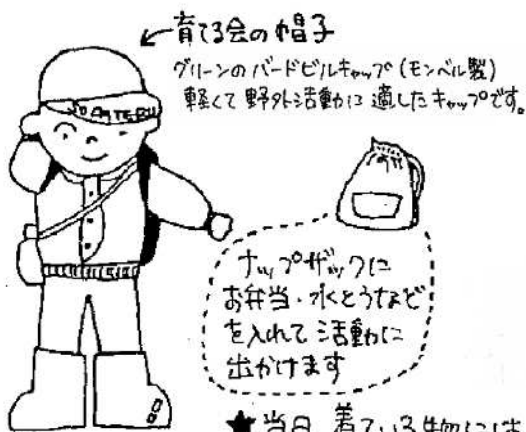 育てる会の帽子
グリーンのバードビルキャップ(モンベル製)
軽くて野外活動に適したキャップです。
SODATERU
ナップザックに
お弁当・水とうなど
を入れて活動に
出かけます
★当日、着ている物には